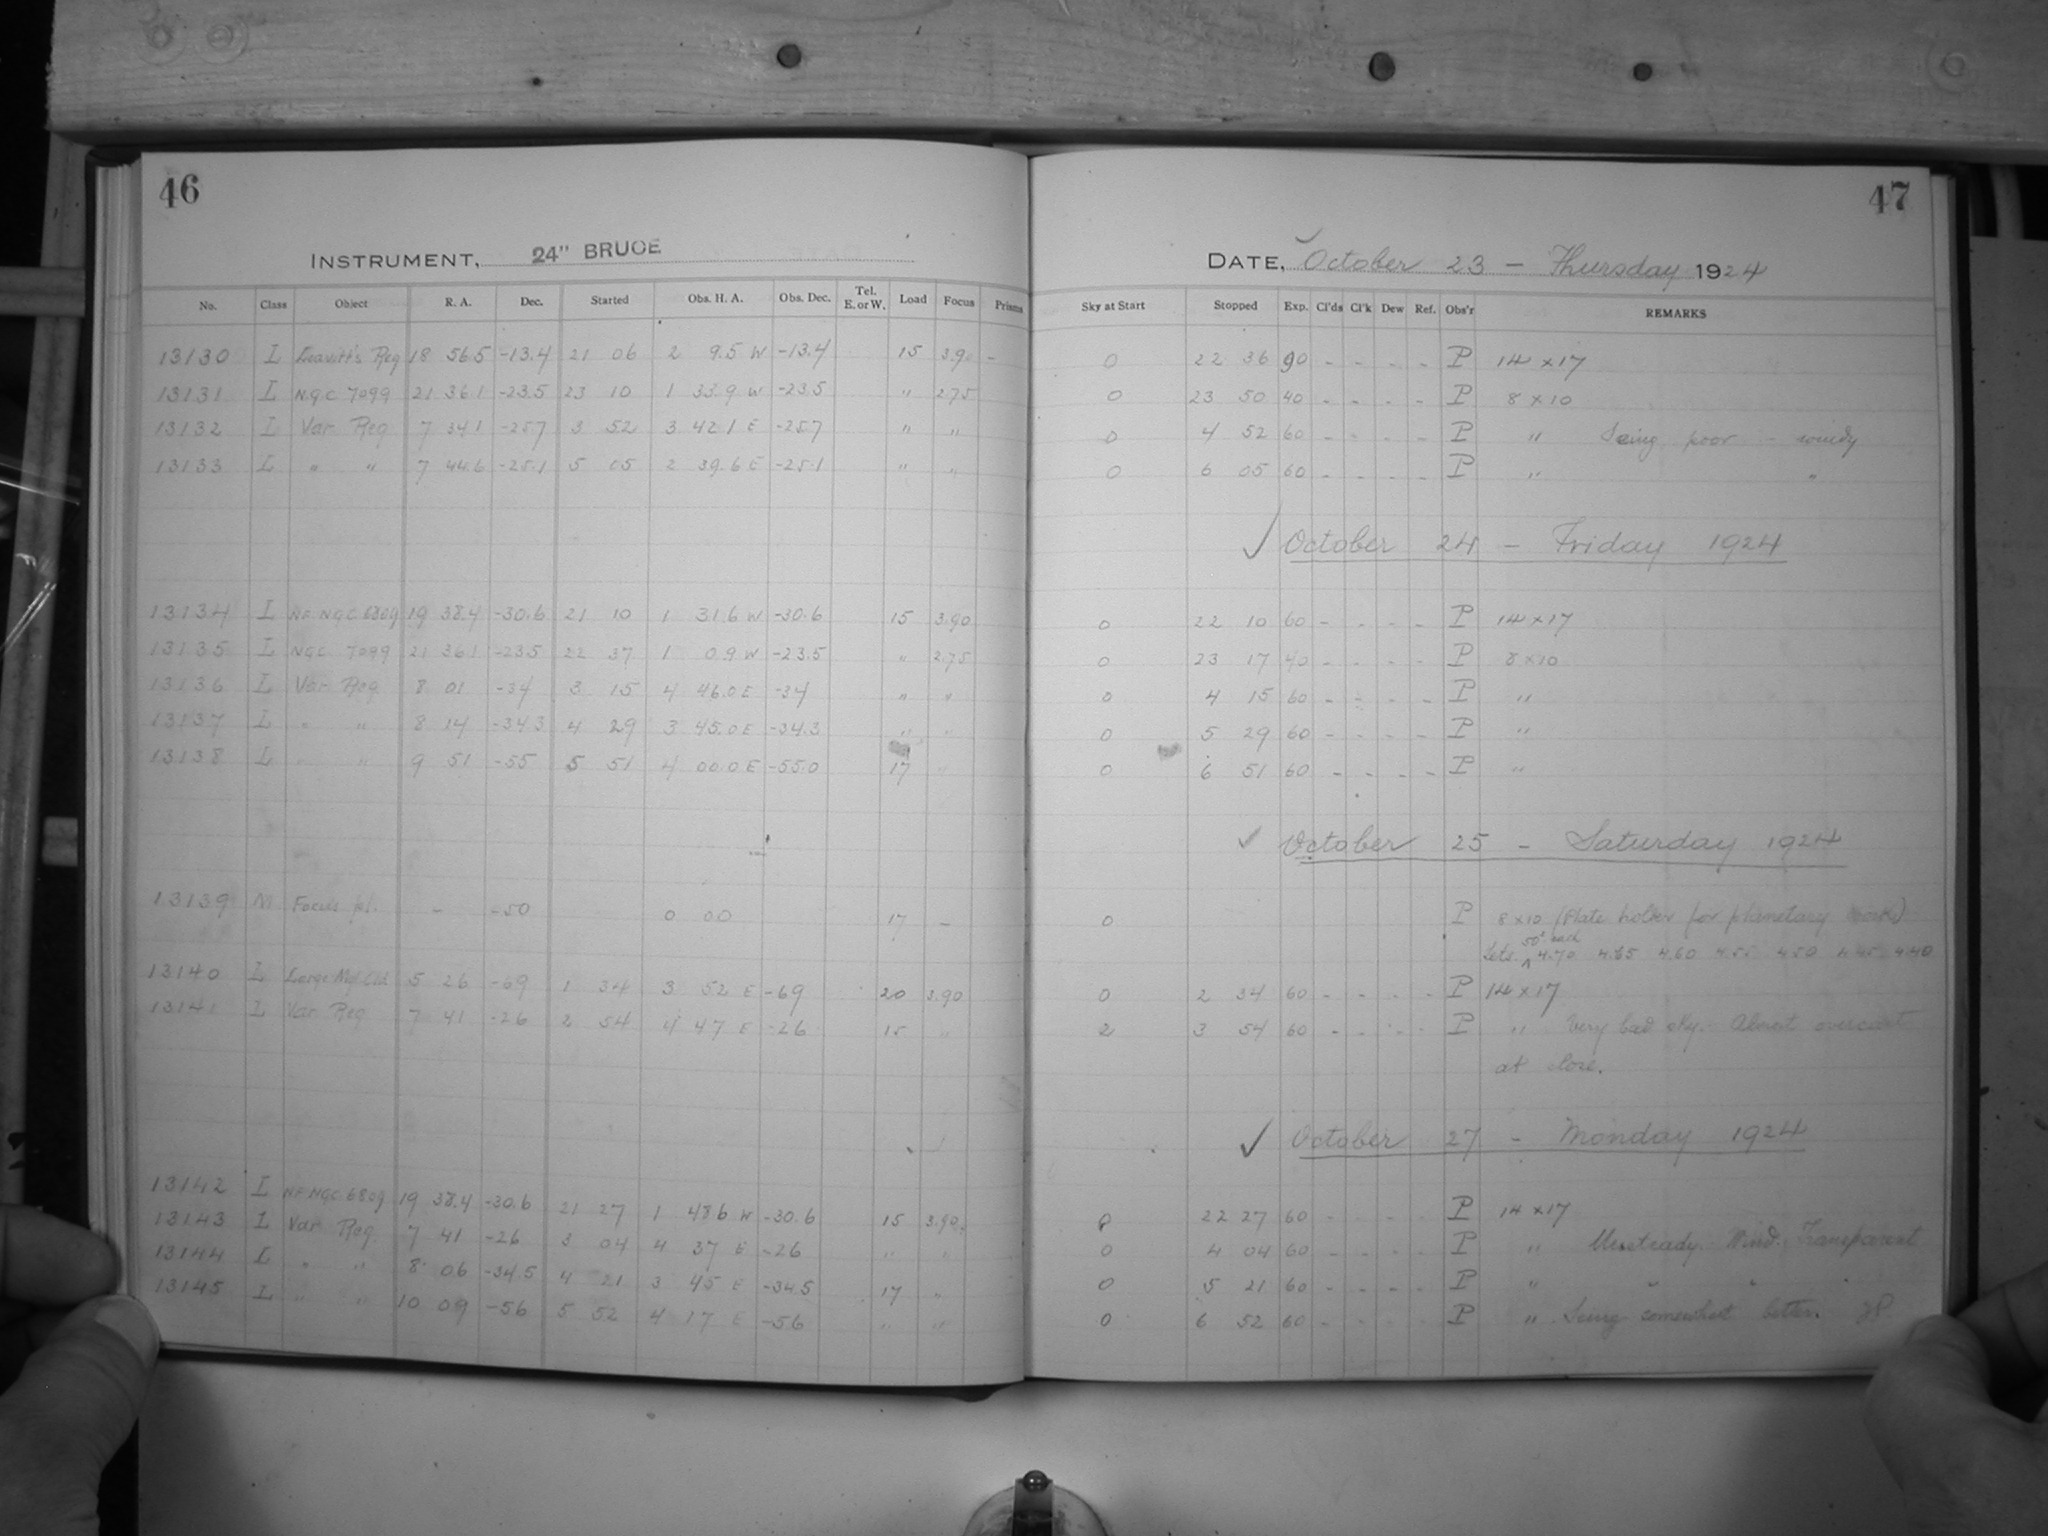 46
47
INSTRUMENT, 24" BRUCE
DATE, October 23 - Thursday 1924
No. Class Object R. A. Dec. Started Obs. H. A. Obs. Dec. Tel. E. or W. Load Focus Prisms Sky at Start Stopped Exp. Cl'ds Cl'k Dew Ref. Obs'r REMARKS
13130 L Leavitt's Reg 18 56.5 -13.4 21 06 2 9.5 W -13.4 15 3.90 - 0 22 36 90 - - - - P 14 x 17
13131 L N.G.C 7099 21 36.1 -23.5 23 10 1 33.9 W -23.5 " 2.75 0 23 50 40 - - - - P 8 x 10
13132 L Var Reg 7 34.1 -25.7 3 52 3 42.1 E -25.7 " " 0 4 52 60 - - - - P " Seing poor - windy
13133 L " " 7 44.6 -25.1 5 05 2 39.6 E -25.1 " " 0 6 05 60 - - - - P " "
✓ October 24 - Friday 1924
13134 L NF NGC 6809 19 38.4 -30.6 21 10 1 31.6 W -30.6 15 3.90 0 22 10 60 - - - - P 14 x 17
13135 L NGC 7099 21 36.1 -23.5 22 37 1 0.9 W -23.5 " 2.75 0 23 17 40 - - - - P 8 x 10
13136 L Var Reg 8 01 -34 3 15 4 46.0 E -34 " " 0 4 15 60 - - - - P "
13137 L " " 8 14 -34.3 4 29 3 45.0 E -34.3 " " 0 5 29 60 - - - - P "
13138 L " " 9 51 -55 5 51 4 00.0 E -55.0 17 " 0 6 51 60 - - - - P "
✓ October 25 - Saturday 1924
13139 M Focus pl. - -50 0 00 17 - 0 P 8 x 10 (Plate holder for planetary work)
50s each
Sets. ^ 4.70 4.65 4.60 4.55 4.50 4.45 4.40
13140 L Large Mag Cld 5 26 -69 1 34 3 52 E -69 20 3.90 0 2 34 60 - - - - P 14 x 17
13141 L Var Reg 7 41 -26 2 54 4 47 E -26 15 " 2 3 54 60 - - - - P " Very bad sky. Almost overcast
at close.
✓ October 27 - Monday 1924
13142 L NF NGC 6809 19 38.4 -30.6 21 27 1 48.6 W -30.6 15 3.90 0 22 27 60 - - - - P 14 x 17
13143 L Var Reg 7 41 -26 3 04 4 37 E -26 " " 0 4 04 60 - - - - P " Unsteady. Wind. Transparent
13144 L " " 8 06 -34.5 4 21 3 45 E -34.5 17 " 0 5 21 60 - - - - P " " " "
13145 L " " 10 09 -56 5 52 4 17 E -56 " " 0 6 52 60 - - - - P " Seing somewhat better. JP